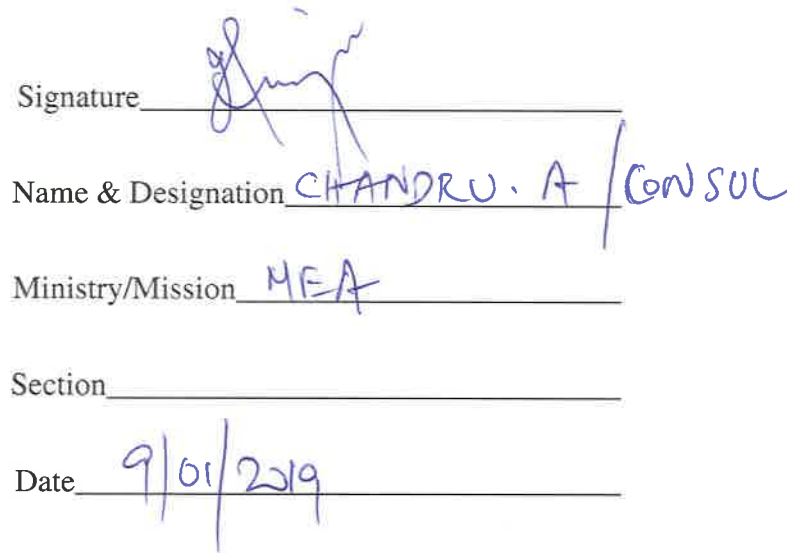 Signature
Name & Designation CHANDRU. A / CONSUL
Ministry/Mission MEA
Section
Date 9/01/2019